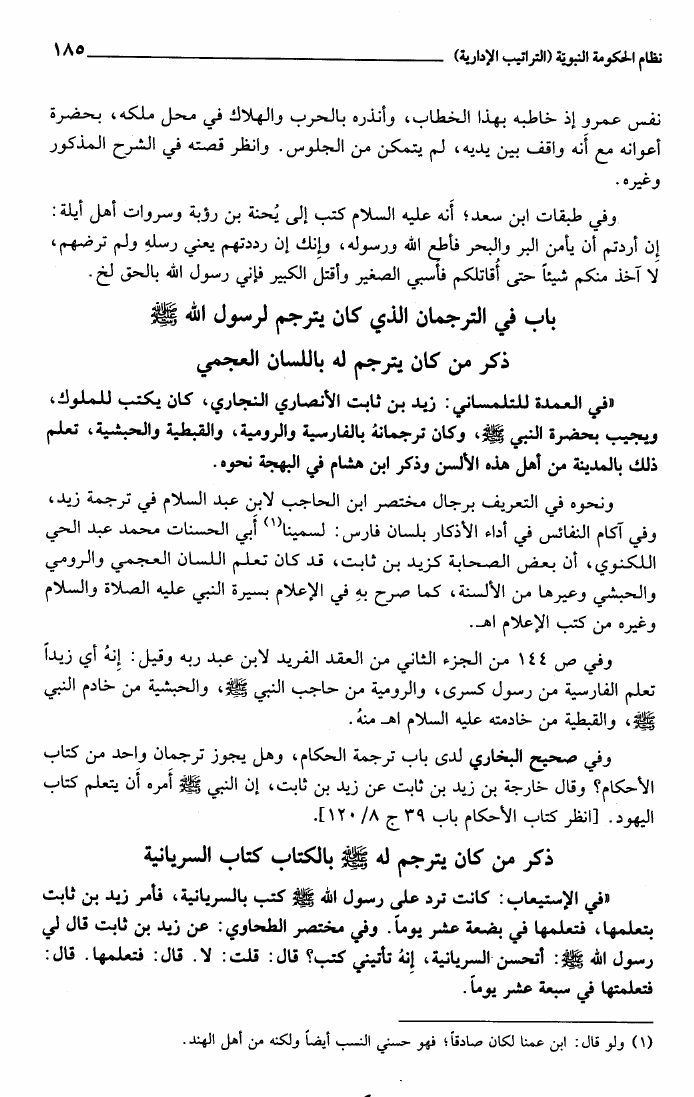 نظام الحكومة النبويّة (التراتيب الإدارية) ١٨٥
نفس عمرو إذ خاطبه بهذا الخطاب، وأنذره بالحرب والهلاك في محل ملكه، بحضرة
أعوانه مع أنه واقف بين يديه، لم يتمكن من الجلوس. وانظر قصته في الشرح المذكور
وغيره.
وفي طبقات ابن سعد؛ أنه عليه السلام كتب إلى يُحنة بن رؤبة وسروات أهل أيلة:
إن أردتم أن يأمن البر والبحر فأطع الله ورسوله، وإنك إن رددتهم يعني رسلهِ ولم ترضهم،
لا آخذ منكم شيئاً حتى أقاتلكم فأسبي الصغير وأقتل الكبير فإني رسول الله بالحق لخ.
باب في الترجمان الذي كان يترجم لرسول الله ﷺ
ذكر من كان يترجم له باللسان العجمي
«في العمدة للتلمساني: زيد بن ثابت الأنصاري النجاري، كان يكتب للملوك،
ويجيب بحضرة النبي ﷺ، وكان ترجمانهُ بالفارسية والرومية، والقبطية والحبشية، تعلم
ذلك بالمدينة من أهل هذه الألسن وذكر ابن هشام في البهجة نحوه.
ونحوه في التعريف برجال مختصر ابن الحاجب لابن عبد السلام في ترجمة زيد،
وفي آكام النفائس في أداء الأذكار بلسان فارس: لسمينا(١) أبي الحسنات محمد عبد الحي
اللكنوي، أن بعض الصحابة كزيد بن ثابت، قد كان تعلم اللسان العجمي والرومي
والحبشي وعيرها من الألسنة، كما صرح بهِ في الإعلام بسيرة النبي عليه الصلاة والسلام
وغيره من كتب الإعلام اهـ.
وفي ص ١٤٤ من الجزء الثاني من العقد الفريد لابن عبد ربه وقيل: إنهُ أي زيداً
تعلم الفارسية من رسول كسرى، والرومية من حاجب النبي ﷺ، والحبشية من خادم النبي
ﷺ، والقبطية من خادمته عليه السلام اهـ منهُ.
وفي صحيح البخاري لدى باب ترجمة الحكام، وهل يجوز ترجمان واحد من كتاب
الأحكام؟ وقال خارجة بن زيد بن ثابت عن زيد بن ثابت، إن النبي ﷺ أمره أن يتعلم كتاب
اليهود. [انظر كتاب الأحكام باب ٣٩ ج ٨/ ١٢٠].
ذكر من كان يترجم له ﷺ بالكتاب كتاب السريانية
«في الإستيعاب: كانت ترد على رسول الله ﷺ كتب بالسريانية، فأمر زيد بن ثابت
بتعلمها، فتعلمها في بضعة عشر يوماً. وفي مختصر الطحاوي: عن زيد بن ثابت قال لي
رسول الله ﷺ: أتحسن السريانية، إنهُ تأتيني كتب؟ قال: قلت: لا. قال: فتعلمها. قال:
فتعلمتها في سبعة عشر يوماً.
(١) ولو قال: ابن عمنا لكان صادقاً؛ فهو حسني النسب أيضاً ولكنه من أهل الهند.